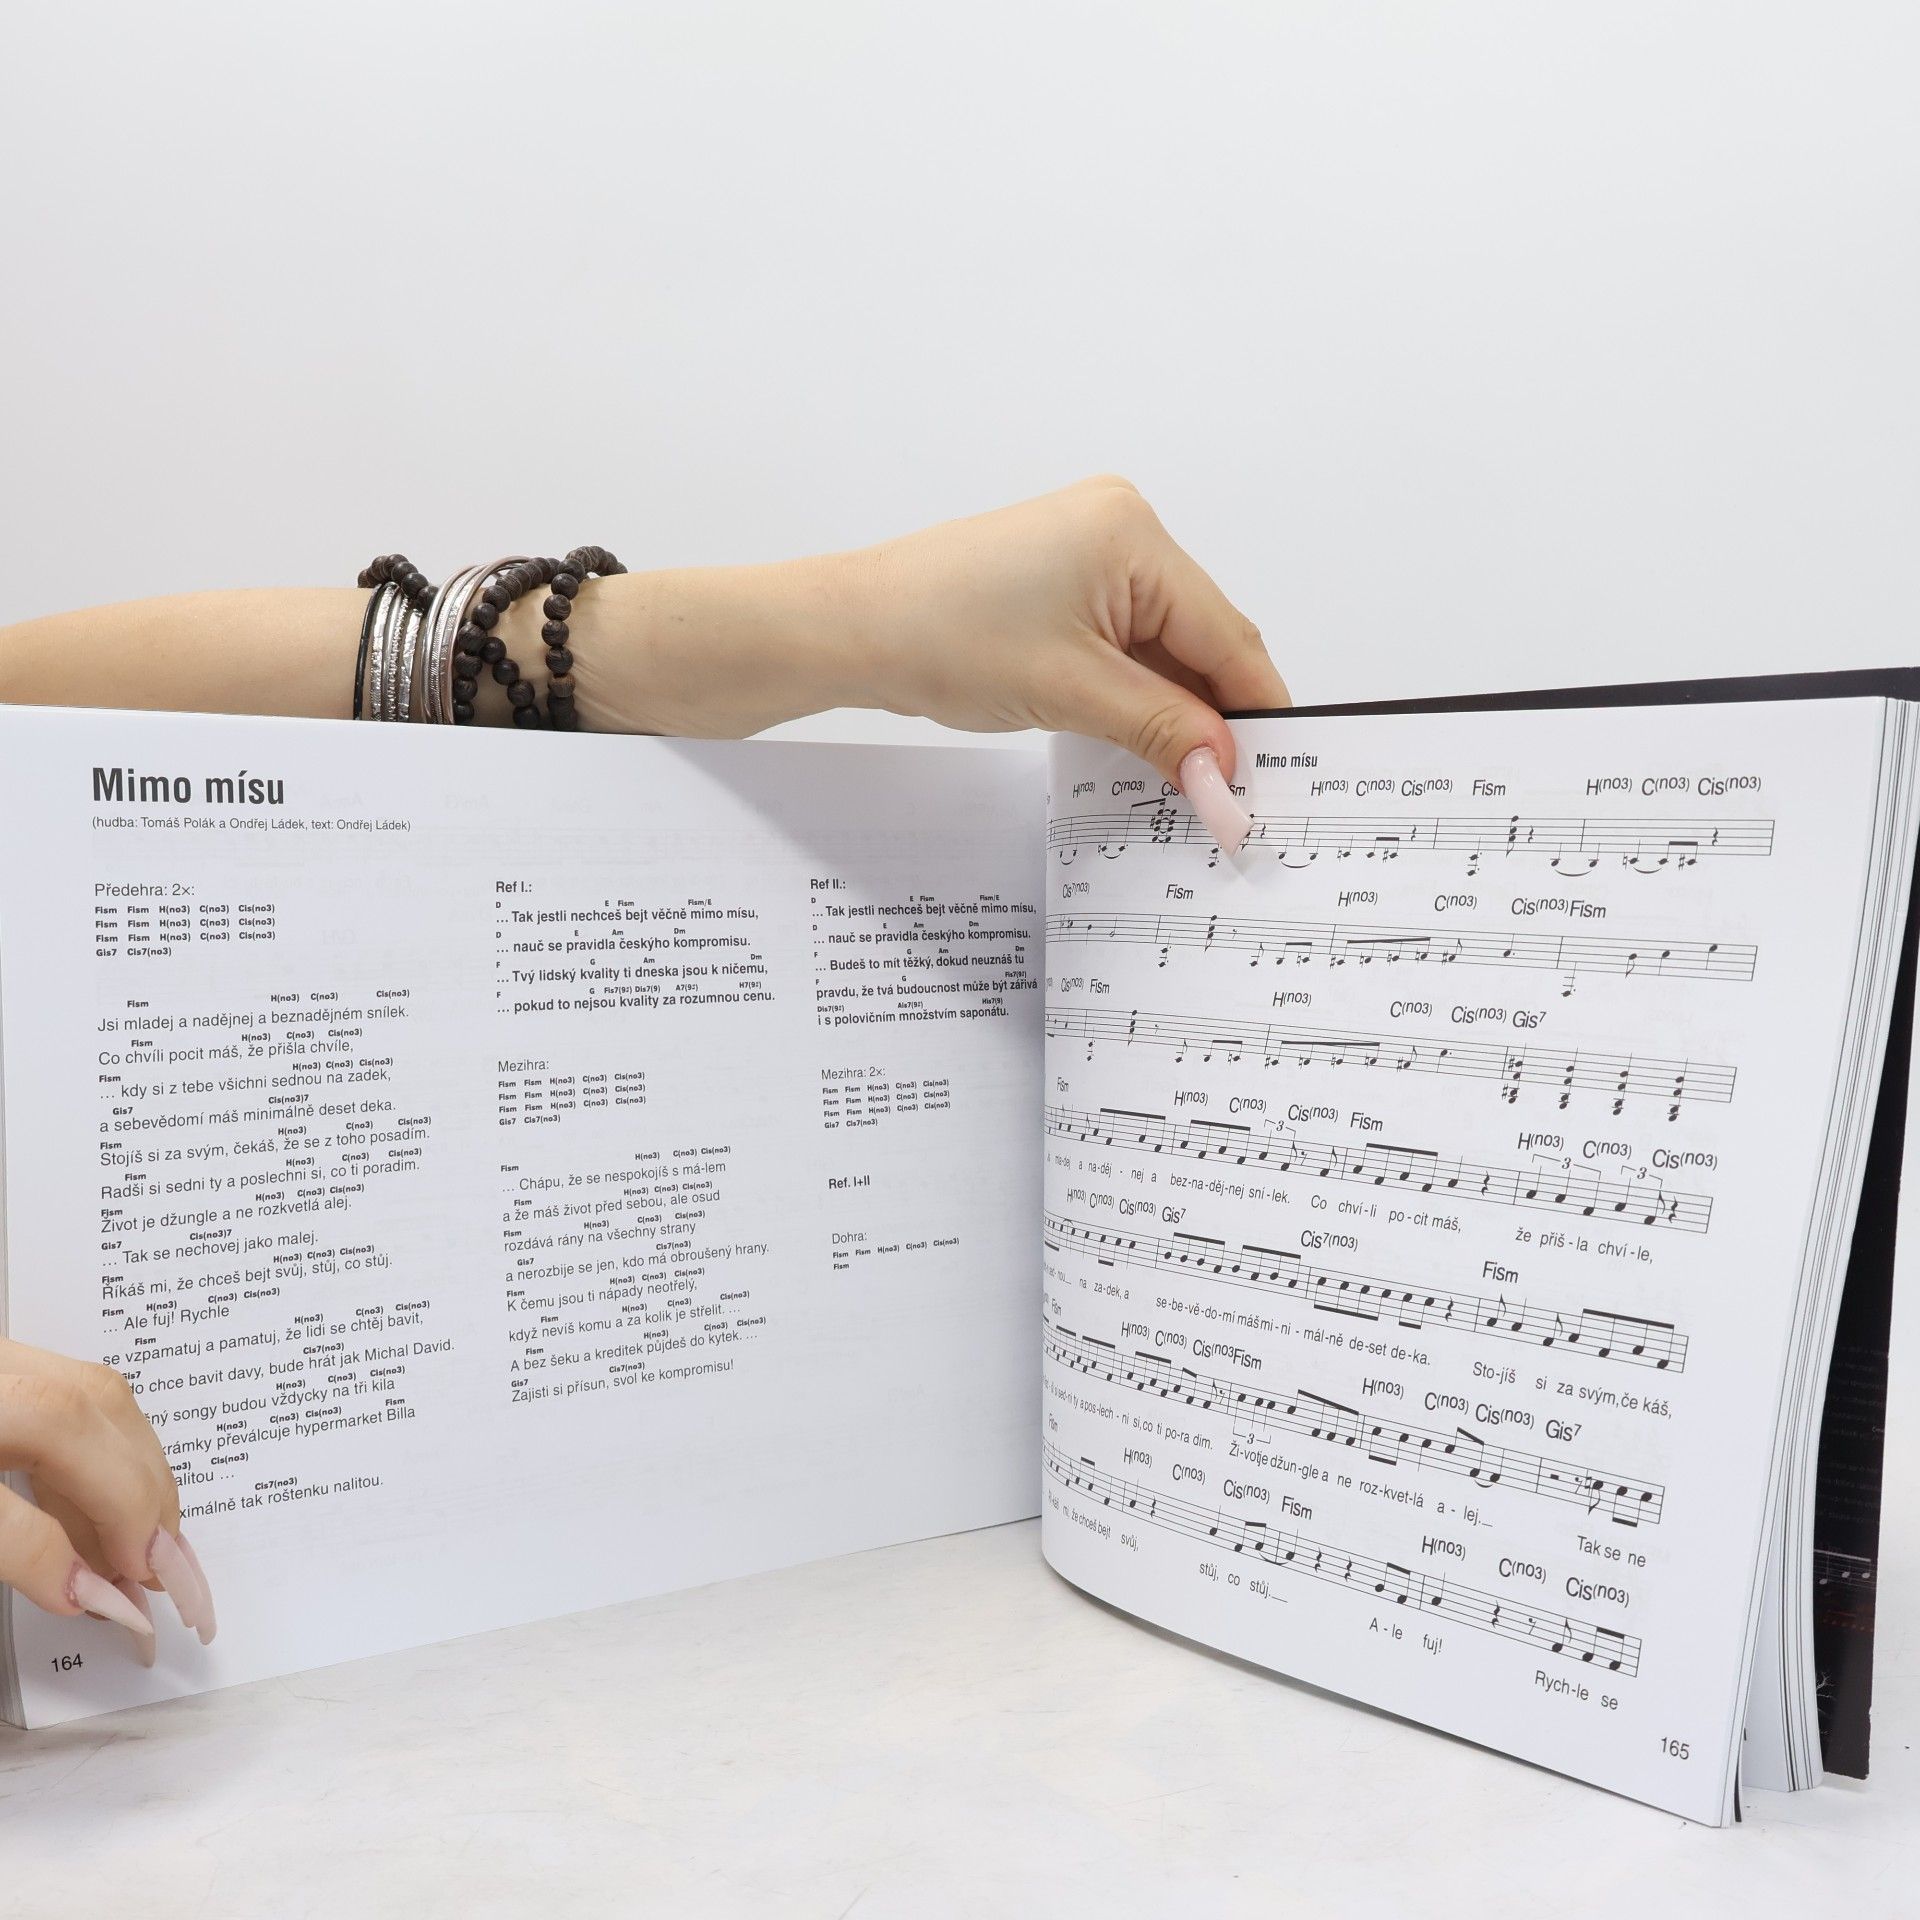 Mimo mísu
(hudba: Tomáš Polák a Ondřej Ládek, text: Ondřej Ládek)
Předehra: 2×:
Fism Fism H(no3) C(no3) Cis(no3)
Fism Fism H(no3) C(no3) Cis(no3)
Fism Fism H(no3) C(no3) Cis(no3)
Gis7 Cis7(no3)
Fism H(no3) C(no3) Cis(no3)
Jsi mladej a nadějnej a beznadějném snílek.
Fism H(no3) C(no3) Cis(no3)
Co chvíli pocit máš, že přišla chvíle,
Fism H(no3) C(no3) Cis(no3)
... kdy si z tebe všichni sednou na zadek,
Gis7 Cis(no3)7
a sebevědomí máš minimálně deset deka.
Fism H(no3) C(no3) Cis(no3)
Stojíš si za svým, čekáš, že se z toho posadím.
Fism H(no3) C(no3) Cis(no3)
Radši si sedni ty a poslechni si, co ti poradim.
Fism H(no3) C(no3) Cis(no3)
Život je džungle a ne rozkvetlá alej.
Gis7 Cis(no3)7
... Tak se nechovej jako malej.
Fism H(no3) C(no3) Cis(no3)
Říkáš mi, že chceš bejt svůj, stůj, co stůj.
Fism H(no3) C(no3) Cis(no3)
... Ale fuj! Rychle
Fism H(no3) C(no3) Cis(no3)
se vzpamatuj a pamatuj, že lidi se chtěj bavit,
Cis7(no3)
do chce bavit davy, bude hrát jak Michal David.
H(no3) C(no3) Cis(no3)
songy budou vždycky na tři kila
H(no3) C(no3) Cis(no3) Fism
krámky převálcuje hypermarket Billa
C(no3) Cis(no3)
alitou ...
Cis7(no3)
ximálně tak roštenku nalitou.
164
Ref I.:
D E Fism Fism/E
... Tak jestli nechceš bejt věčně mimo mísu,
D E Am Dm
... nauč se pravidla českýho kompromisu.
F G Am Dm
... Tvý lidský kvality ti dneska jsou k ničemu,
F G Fis7(9♯) Dis7(9) A7(9♯) H7(9♯)
... pokud to nejsou kvality za rozumnou cenu.
Mezihra:
Fism Fism H(no3) C(no3) Cis(no3)
Fism Fism H(no3) C(no3) Cis(no3)
Fism Fism H(no3) C(no3) Cis(no3)
Gis7 Cis7(no3)
Fism H(no3) C(no3) Cis(no3)
... Chápu, že se nespokojíš s má-lem
Fism H(no3) C(no3) Cis(no3)
a že máš život před sebou, ale osud
Fism H(no3) C(no3) Cis(no3)
rozdává rány na všechny strany
Gis7 Cis7(no3)
a nerozbije se jen, kdo má obroušený hrany.
Fism H(no3) C(no3) Cis(no3)
K čemu jsou ti nápady neotřelý,
Fism H(no3) C(no3) Cis(no3)
když nevíš komu a za kolik je střelit. ...
Fism H(no3) C(no3) Cis(no3)
A bez šeku a kreditek půjdeš do kytek. ...
Gis7 Cis7(no3)
Zajisti si přísun, svol ke kompromisu!
Ref II.:
D E Fism Fism/E
... Tak jestli nechceš bejt věčně mimo mísu,
D E Am Dm
... nauč se pravidla českýho kompromisu.
F G Am Dm
... Budeš to mít těžký, dokud neuznáš tu
F G Fis7(9♯)
pravdu, že tvá budoucnost může být zářivá
Dis7(9♯) Ais7(9♯) His7(9)
i s polovičním množstvím saponátu.
Mezihra: 2×:
Fism Fism H(no3) C(no3) Cis(no3)
Fism Fism H(no3) C(no3) Cis(no3)
Fism Fism H(no3) C(no3) Cis(no3)
Gis7 Cis7(no3)
Ref. I+II
Dohra:
Fism Fism H(no3) C(no3) Cis(no3)
Fism
Mimo mísu
H(no3) C(no3) Cis H(no3) C(no3) Cis(no3) Fism H(no3) C(no3) Cis(no3)
Cis7(no3) Fism H(no3) C(no3) Cis(no3) Fism
Cis(no3) Fism H(no3) C(no3) Cis(no3) Gis7
Fism H(no3) C(no3) Cis(no3) Fism H(no3) C(no3) Cis(no3)
3 3 3
a na-děj - nej a bez-na-děj-nej sní-lek. Co chví-li po-cit máš, že přiš-la chví-le,
H(no3) C(no3) Cis(no3) Gis7 Cis7(no3) Fism
na za-dek, a se-be-vě-do-mí máš mi-ni-mál-ně de-set de-ka. Sto-jíš si za svým, če káš,
Fism H(no3) C(no3) Cis(no3) Fism H(no3) C(no3) Cis(no3) Gis7
3
sed-ni ty a pos-lech - ni si, co ti po-ra dim. Ži-vot je džun-gle a ne roz-kvet-lá a - lej. Tak se ne
Fism H(no3) C(no3) Cis(no3) Fism H(no3) C(no3) Cis(no3)
mi, že chceš bejt svůj, stůj, co stůj. A - le fuj! Rych-le se
165